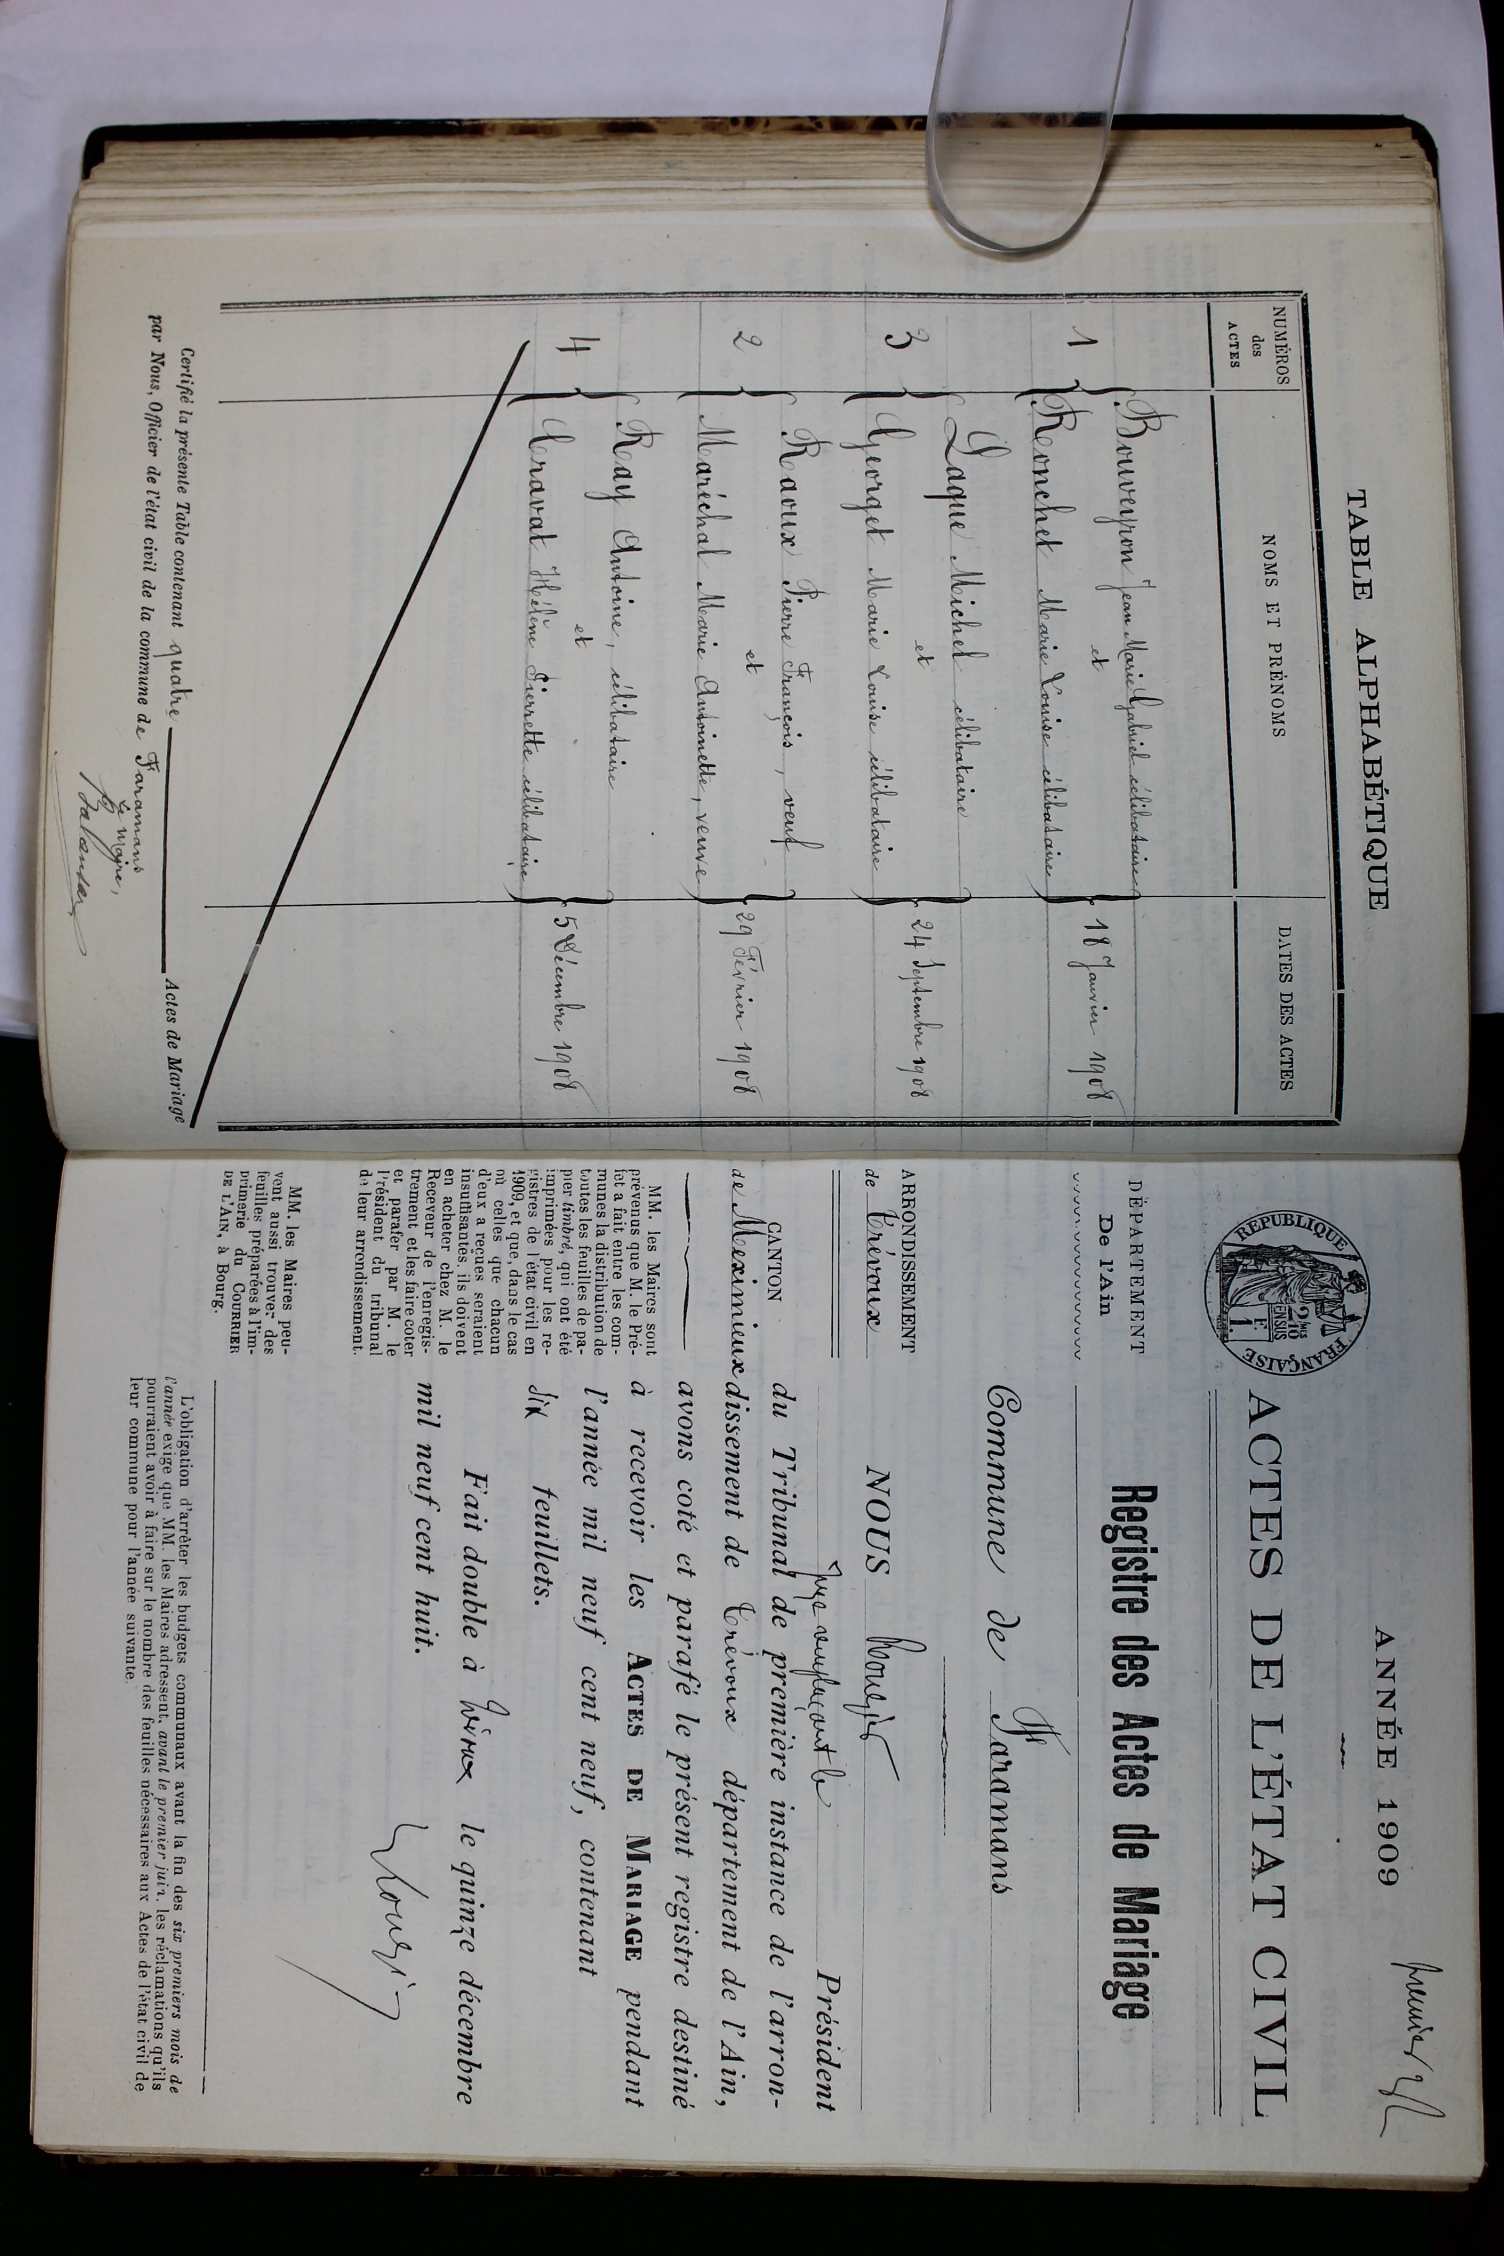 TABLE ALPHABÉTIQUE
NUMÉROS
des
ACTES
NOMS ET PRÉNOMS
DATES DES ACTES
Bouveyron Jean Marie Gabriel célibataire
1 et 18 Janvier 1908
Ronchet Marie Louise célibataire
Laque Michel célibataire
3 et 24 Septembre 1908
Georget Marie Louise célibataire
Raoux Pierre François, veuf
2 et 29 Février 1908
Maréchal Marie Antoinette, veuve
Ray Antoine, célibataire
4 et 5 Décembre 1908
Cravat Hélène Pierrette célibataire
Certifié la présente Table contenant quatre Actes de Mariage
par Nous, Officier de l'état civil de la commune de Faramans
Le Maire,
premier
ANNÉE 1909
REPUBLIQUE FRANÇAISE
2/10
EN SUS
1 F.
ACTES DE L'ÉTAT CIVIL
DÉPARTEMENT
De l'Ain
Registre des Actes de Mariage
Commune de Faramans
ARRONDISSEMENT
de Trévoux
CANTON
de Meximieux
MM. les Maires sont
prévenus que M. le Pré-
fet a fait entre les com-
munes la distribution de
toutes les feuilles de pa-
pier timbré, qui ont été
imprimées pour les re-
gistres de l'état civil en
1909, et que, dans le cas
où celles que chacun
d'eux a reçues seraient
insuffisantes, ils doivent
en acheter chez M. le
Receveur de l'enregis-
trement et les faire coter
et parafer par M. le
Président du tribunal
de leur arrondissement.
MM. les Maires peu-
vent aussi trouver des
feuilles préparées à l'im-
primerie du COURRIER
DE L'AIN, à Bourg.
NOUS
Juge remplaçant le Président
du Tribunal de première instance de l'arron-
dissement de Trévoux département de l'Ain,
avons coté et parafé le présent registre destiné
à recevoir les ACTES DE MARIAGE pendant
l'année mil neuf cent neuf, contenant
dix feuillets.
Fait double à Trévoux le quinze décembre
mil neuf cent huit.
L'obligation d'arrêter les budgets communaux avant la fin des six premiers mois de
l'année exige que MM. les Maires adressent, avant le premier juin, les réclamations qu'ils
pourraient avoir à faire sur le nombre des feuilles nécessaires aux Actes de l'état civil de
leur commune pour l'année suivante.